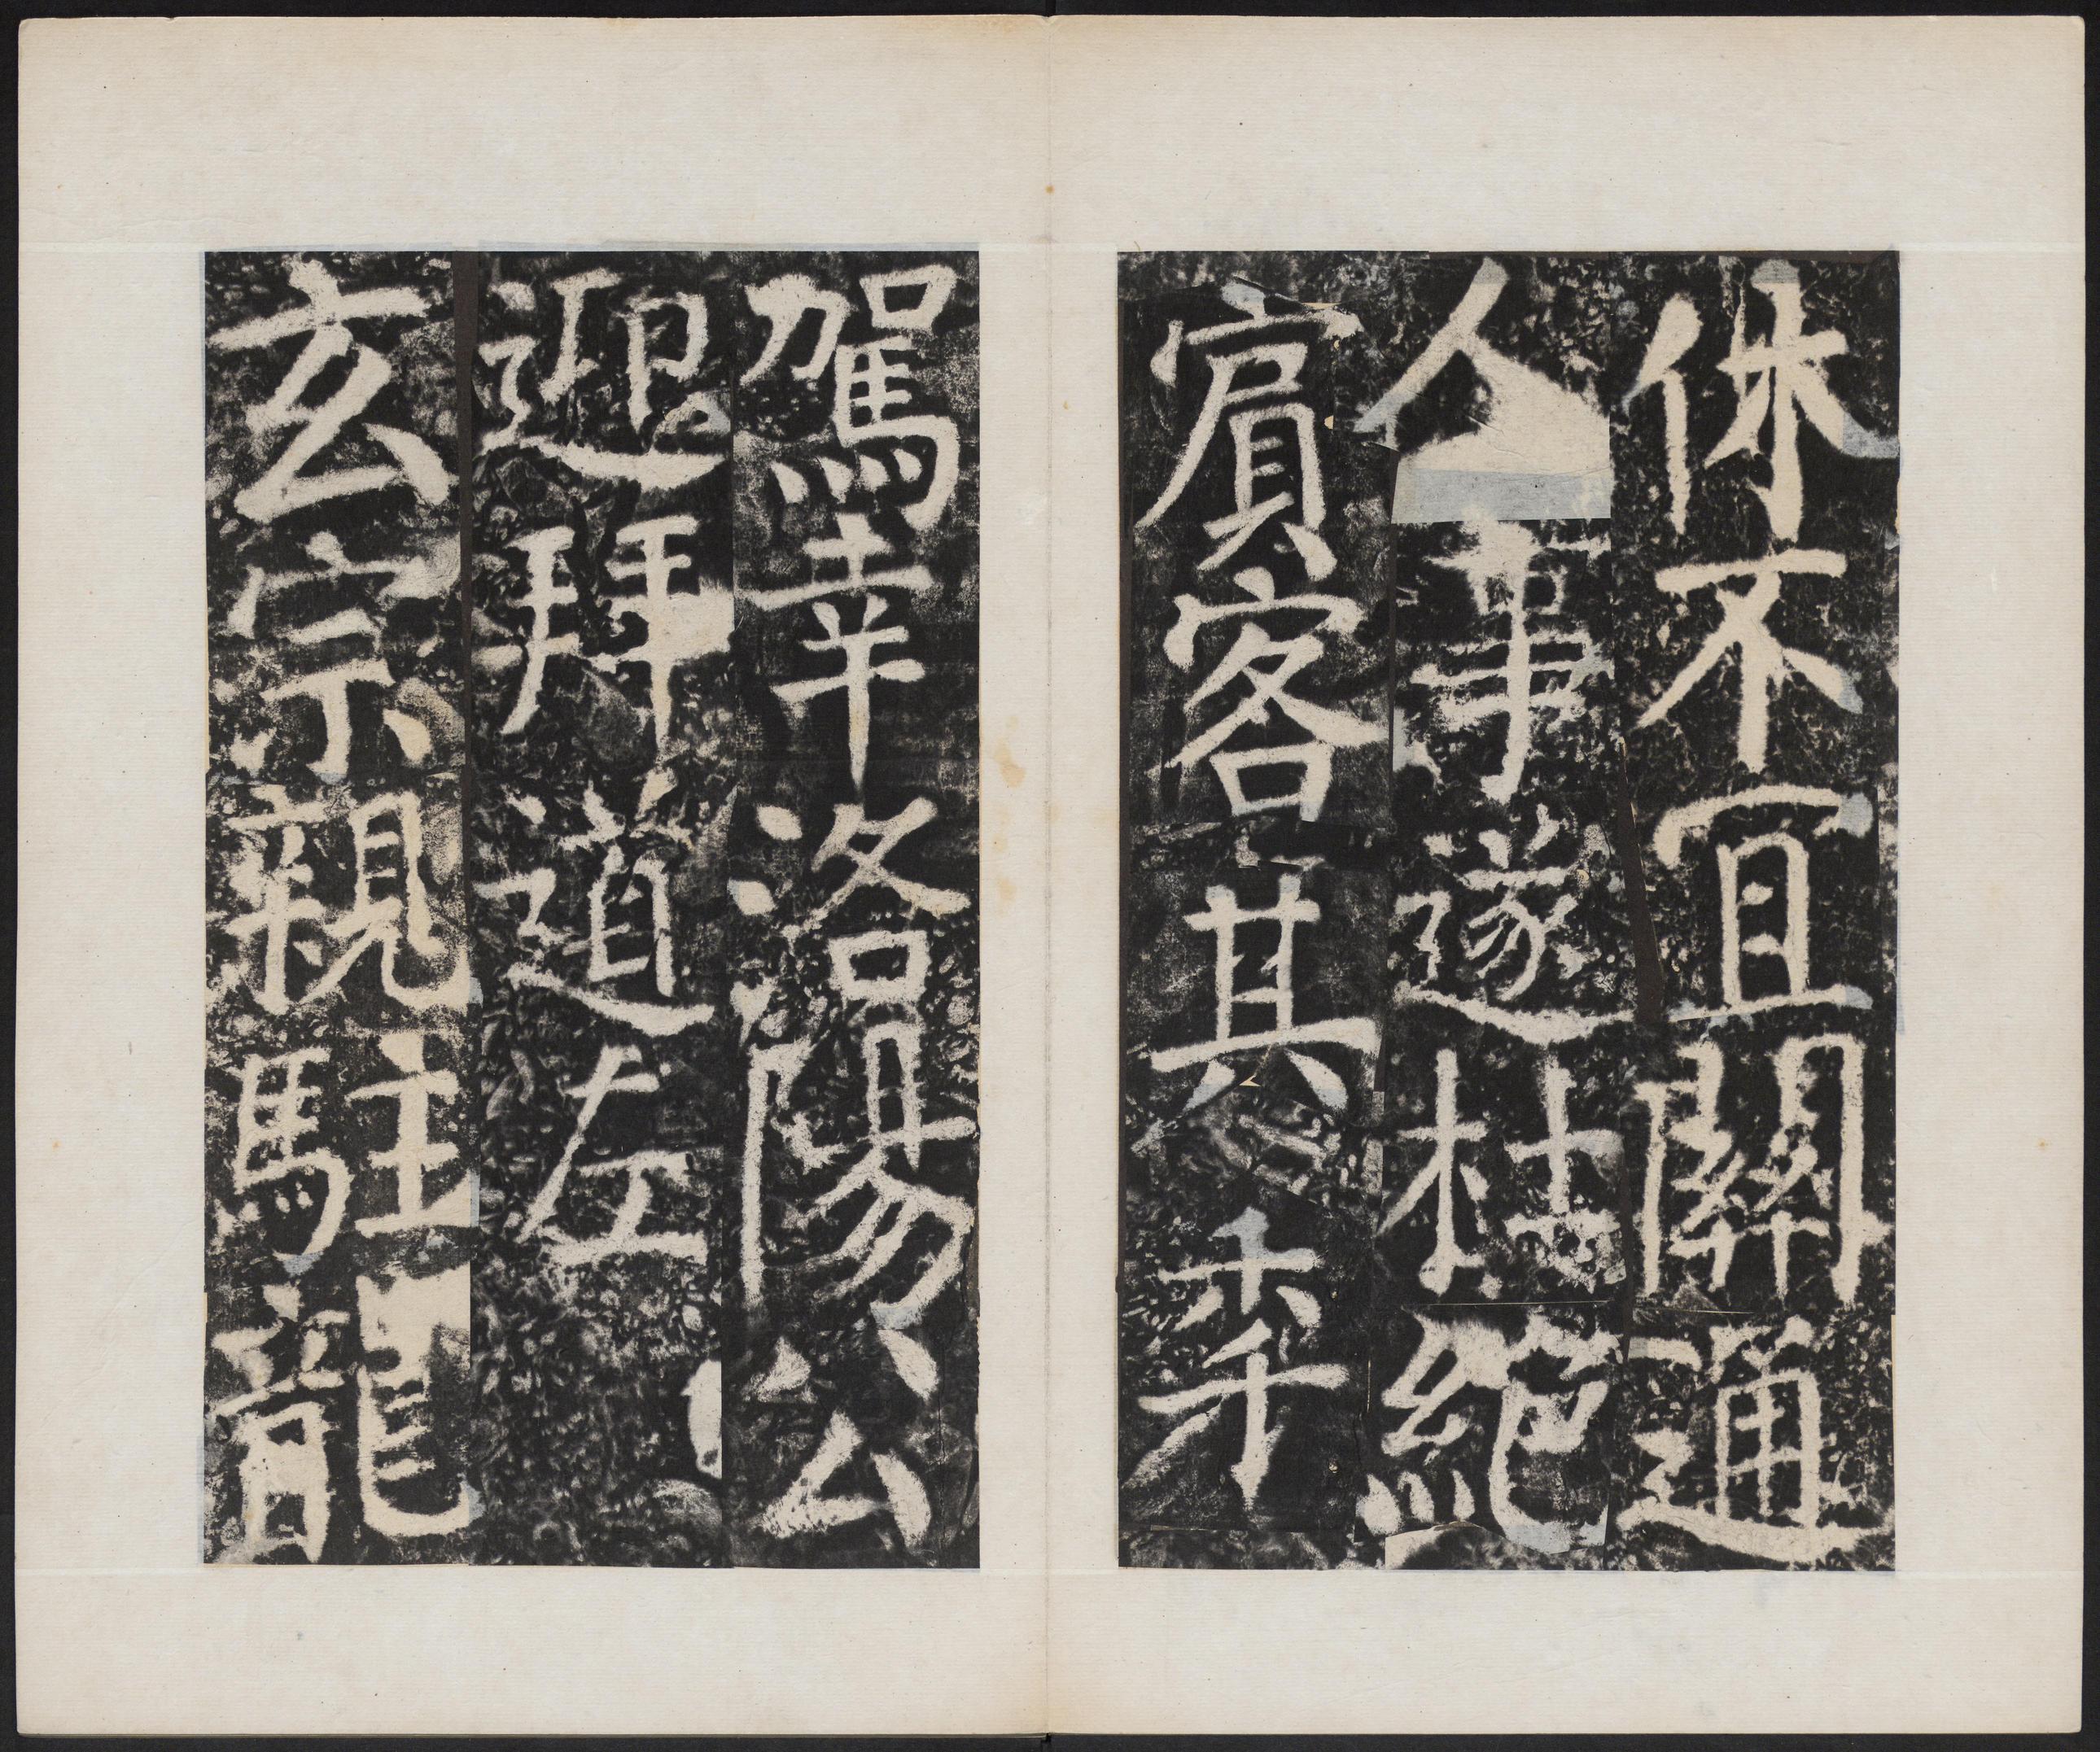 休不宜關通
人事遂杜絕
賓客其季
駕幸洛陽公
迎拜道左
玄宗親駐龍